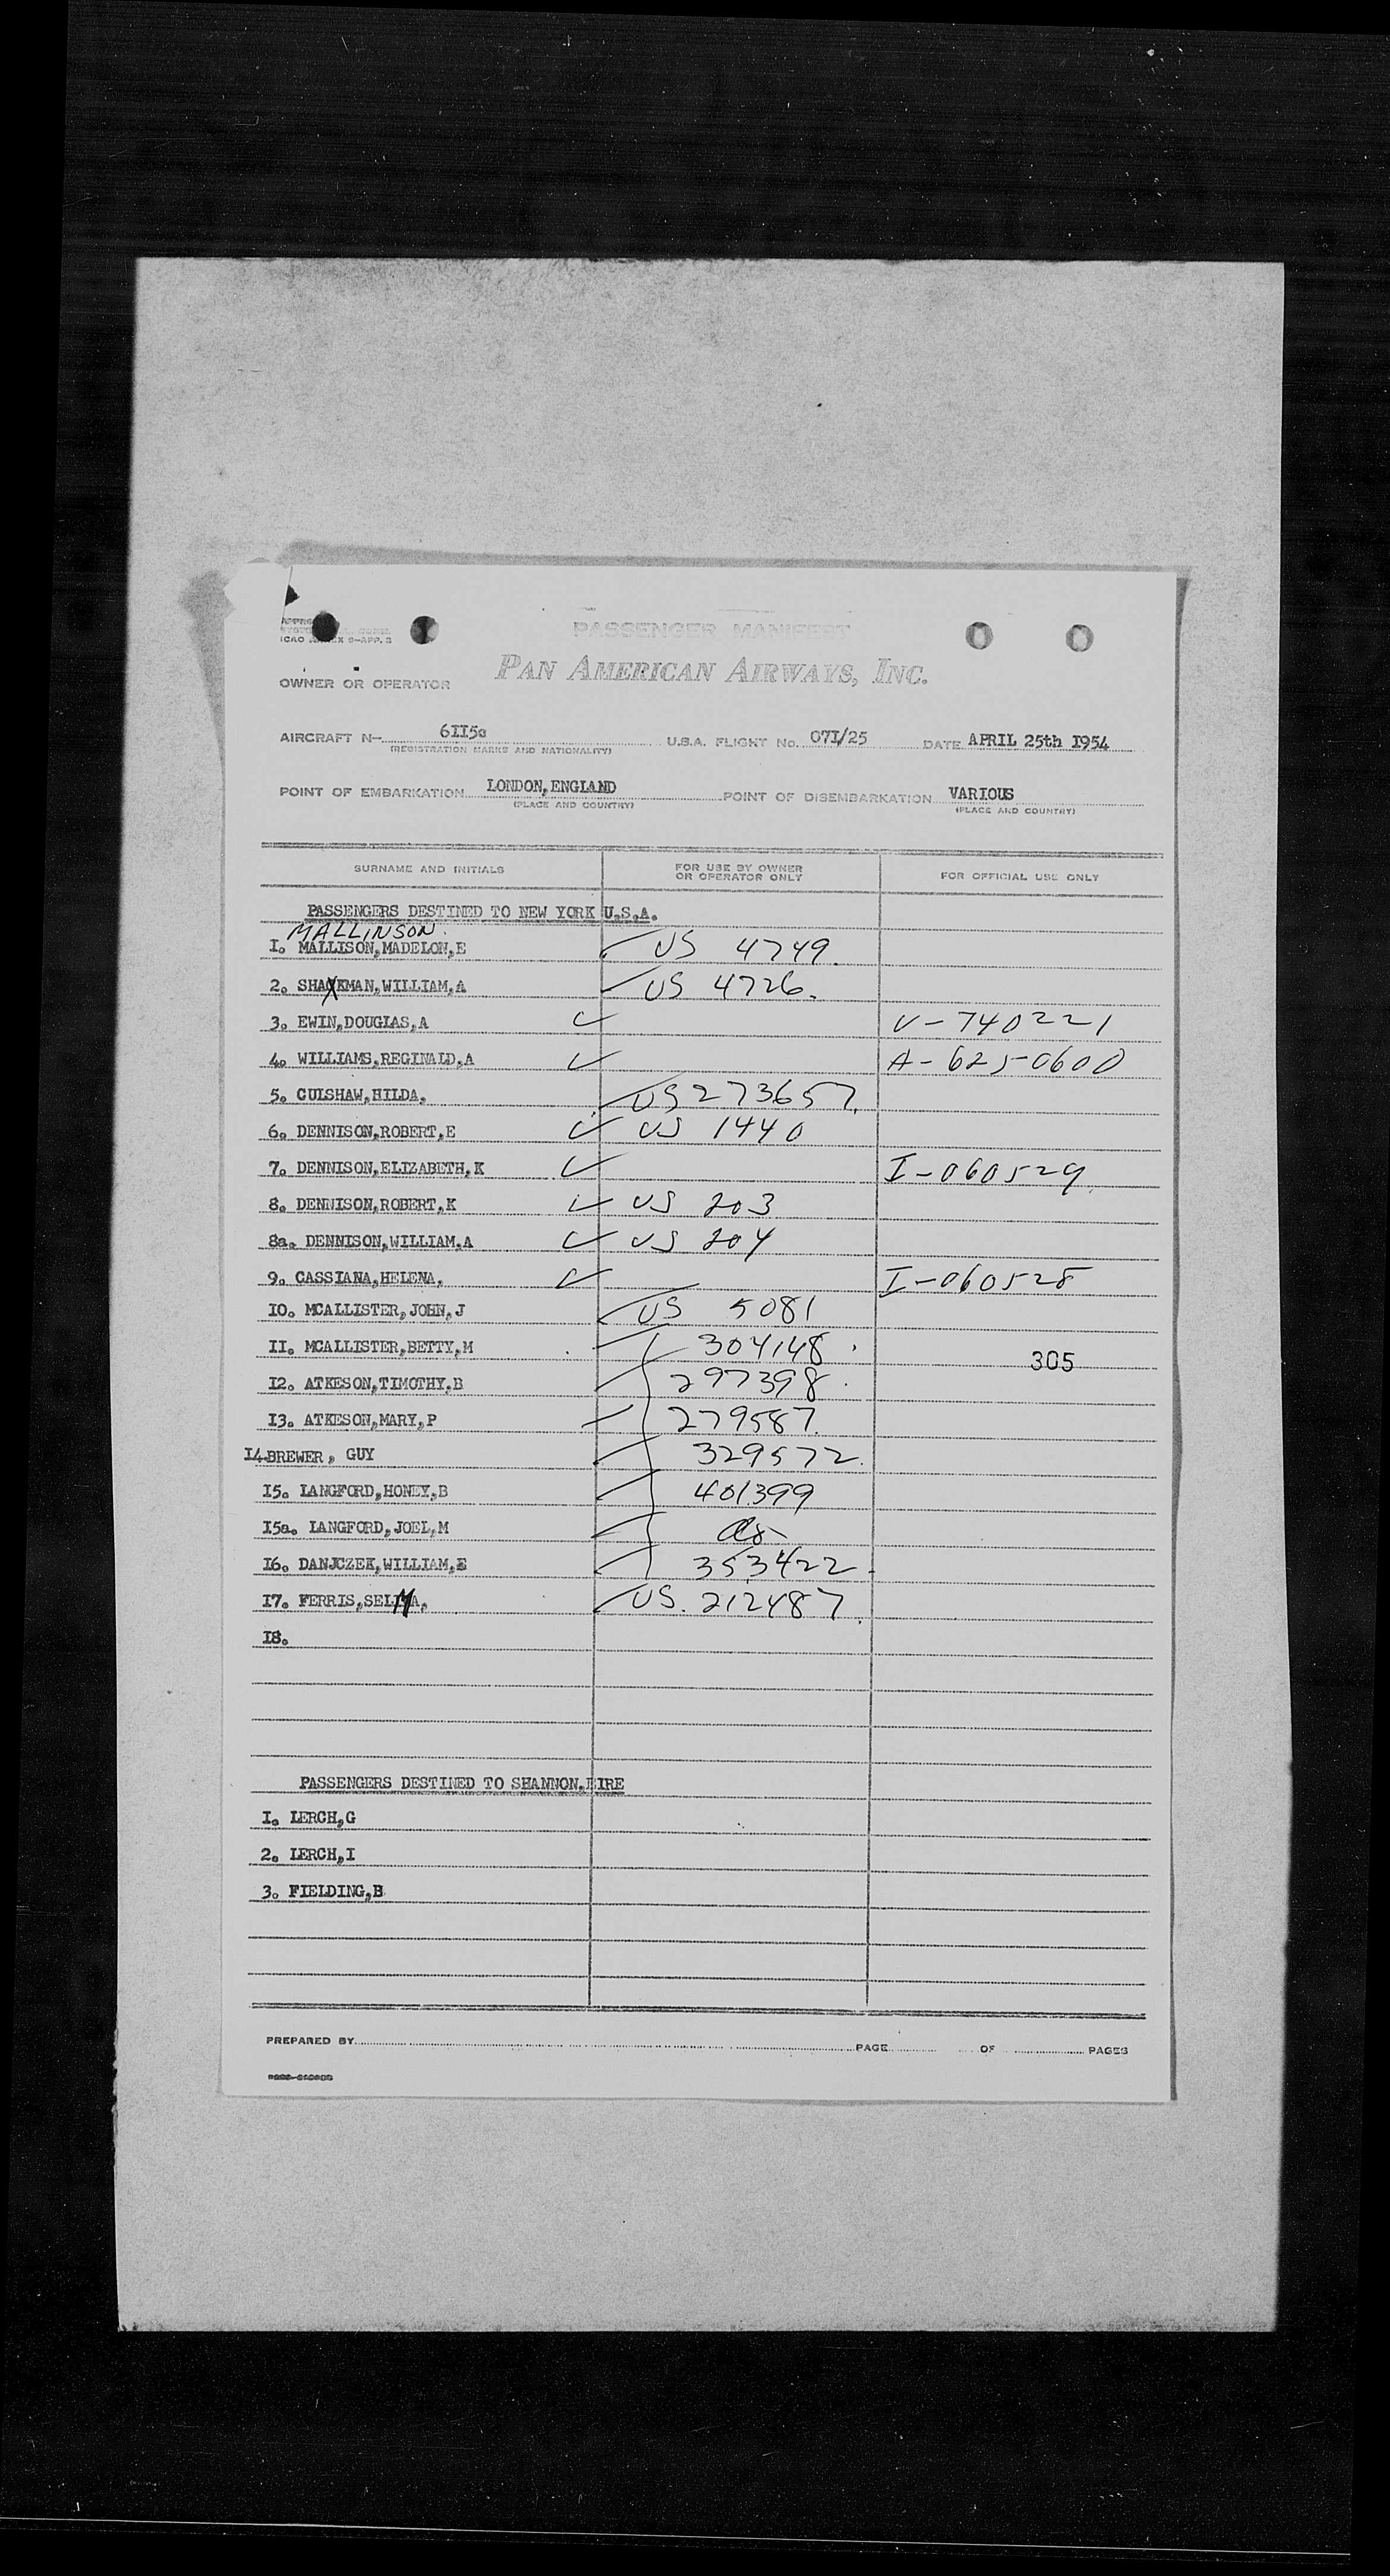 ICAO ANNEX 9-APP. 3
PASSENGER MANIFEST
PAN AMERICAN AIRWAYS, INC.
OWNER OR OPERATOR
AIRCRAFT N- 6II5c U.S.A. FLIGHT No. 07I/25 DATE APRIL 25th I954
(REGISTRATION MARKS AND NATIONALITY)
POINT OF EMBARKATION LONDON,ENGLAND POINT OF DISEMBARKATION VARIOUS
(PLACE AND COUNTRY) (PLACE AND COUNTRY)
SURNAME AND INITIALS FOR USE BY OWNER OR OPERATOR ONLY FOR OFFICIAL USE ONLY
PASSENGERS DESTINED TO NEW YORK U.S.A.
MALLINSON.
I. MALLISON,MADELON,E US 4749.
2. SHACKMAN,WILLIAM,A US 4726.
3. EWIN,DOUGLAS,A V-740221
4. WILLIAMS,REGINALD,A A-6250600
5. CULSHAW,HILDA, US 273657.
6. DENNISON,ROBERT,E US 1440
7. DENNISON,ELIZABETH,K I-060529
8. DENNISON,ROBERT,K US 203
8a. DENNISON,WILLIAM,A US 204
9. CASSIANA,HELENA, I-060528
IO. MCALLISTER,JOHN,J US 5081
II. MCALLISTER,BETTY,M 304148
305
I2. ATKESON,TIMOTHY,B 297398
I3. ATKESON,MARY,P 279587.
I4.BREWER, GUY 329572.
I5. LANGFORD,HONEY,B 401399
I5a. LANGFORD,JOEL,M
I6. DANJCZEK,WILLIAM,E 353422
I7. FERRIS,SELMA, US. 212487
I8.
PASSENGERS DESTINED TO SHANNON,EIRE
I. LERCH,G
2. LERCH,I
3. FIELDING,B
PREPARED BY PAGE OF PAGES